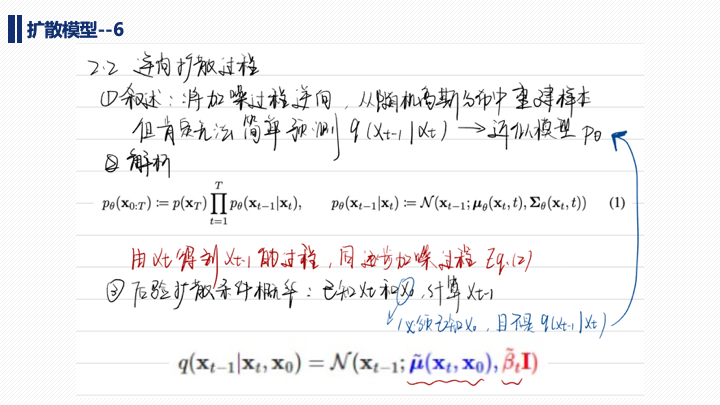 扩散模型--6
2.2 逆向扩散过程
① 叙述：将加噪过程逆向，从随机高斯分布中重建样本
但肯定无法简单预测 q(x_{t-1}|x_t) → 近似模型 p_θ
② 解析
p_θ(x_{0:T}) := p(x_T) ∏_{t=1}^{T} p_θ(x_{t-1}|x_t), p_θ(x_{t-1}|x_t) := N(x_{t-1}; μ_θ(x_t, t), Σ_θ(x_t, t)) (1)
由 x_t 得到 x_{t-1} 的过程，同逐步加噪过程 Eq.(2)
③ 后验扩散条件概率：已知 x_t 和 x_0，计算 x_{t-1}
必须已知 x_0，且不是 q(x_{t-1}|x_t)
q(x_{t-1}|x_t, x_0) = N(x_{t-1}; μ̃(x_t, x_0), β̃_t I)